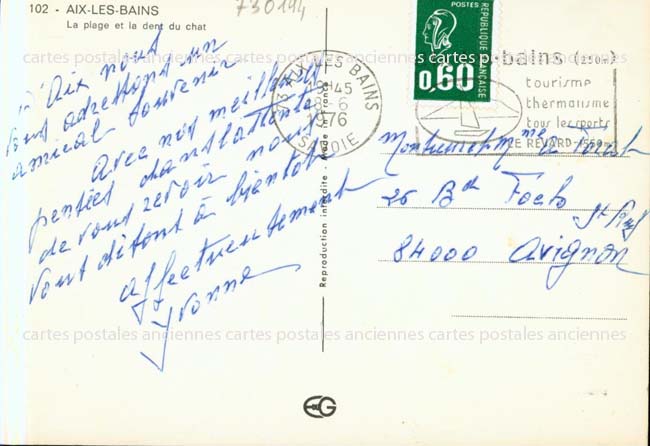 102 - AIX-LES-BAINS
La plage et la dent du chat
730194
Aix nous
vous adressons un
amical souvenir
Avec nos meilleures
pensées dans l'attente
de vous revoir nous
vous disons à bientôt
affectueusement
Yvonne
Reproduction interdite - Made in France
EG
POSTES
RÉPUBLIQUE FRANÇAISE
0,60
AIX LES BAINS
45
8-6
1976
SAVOIE
bains (250m)
tourisme
thermalisme
tous les sports
LE REVARD 1550m
Monsieur et Mme
26 Bd
84000 Avignon
cartes postales anciennes cartes postales anciennes cartes postales anciennes
cartes postales anciennes cartes postales anciennes cartes postales anciennes
cartes postales anciennes cartes postales anciennes cartes postales anciennes